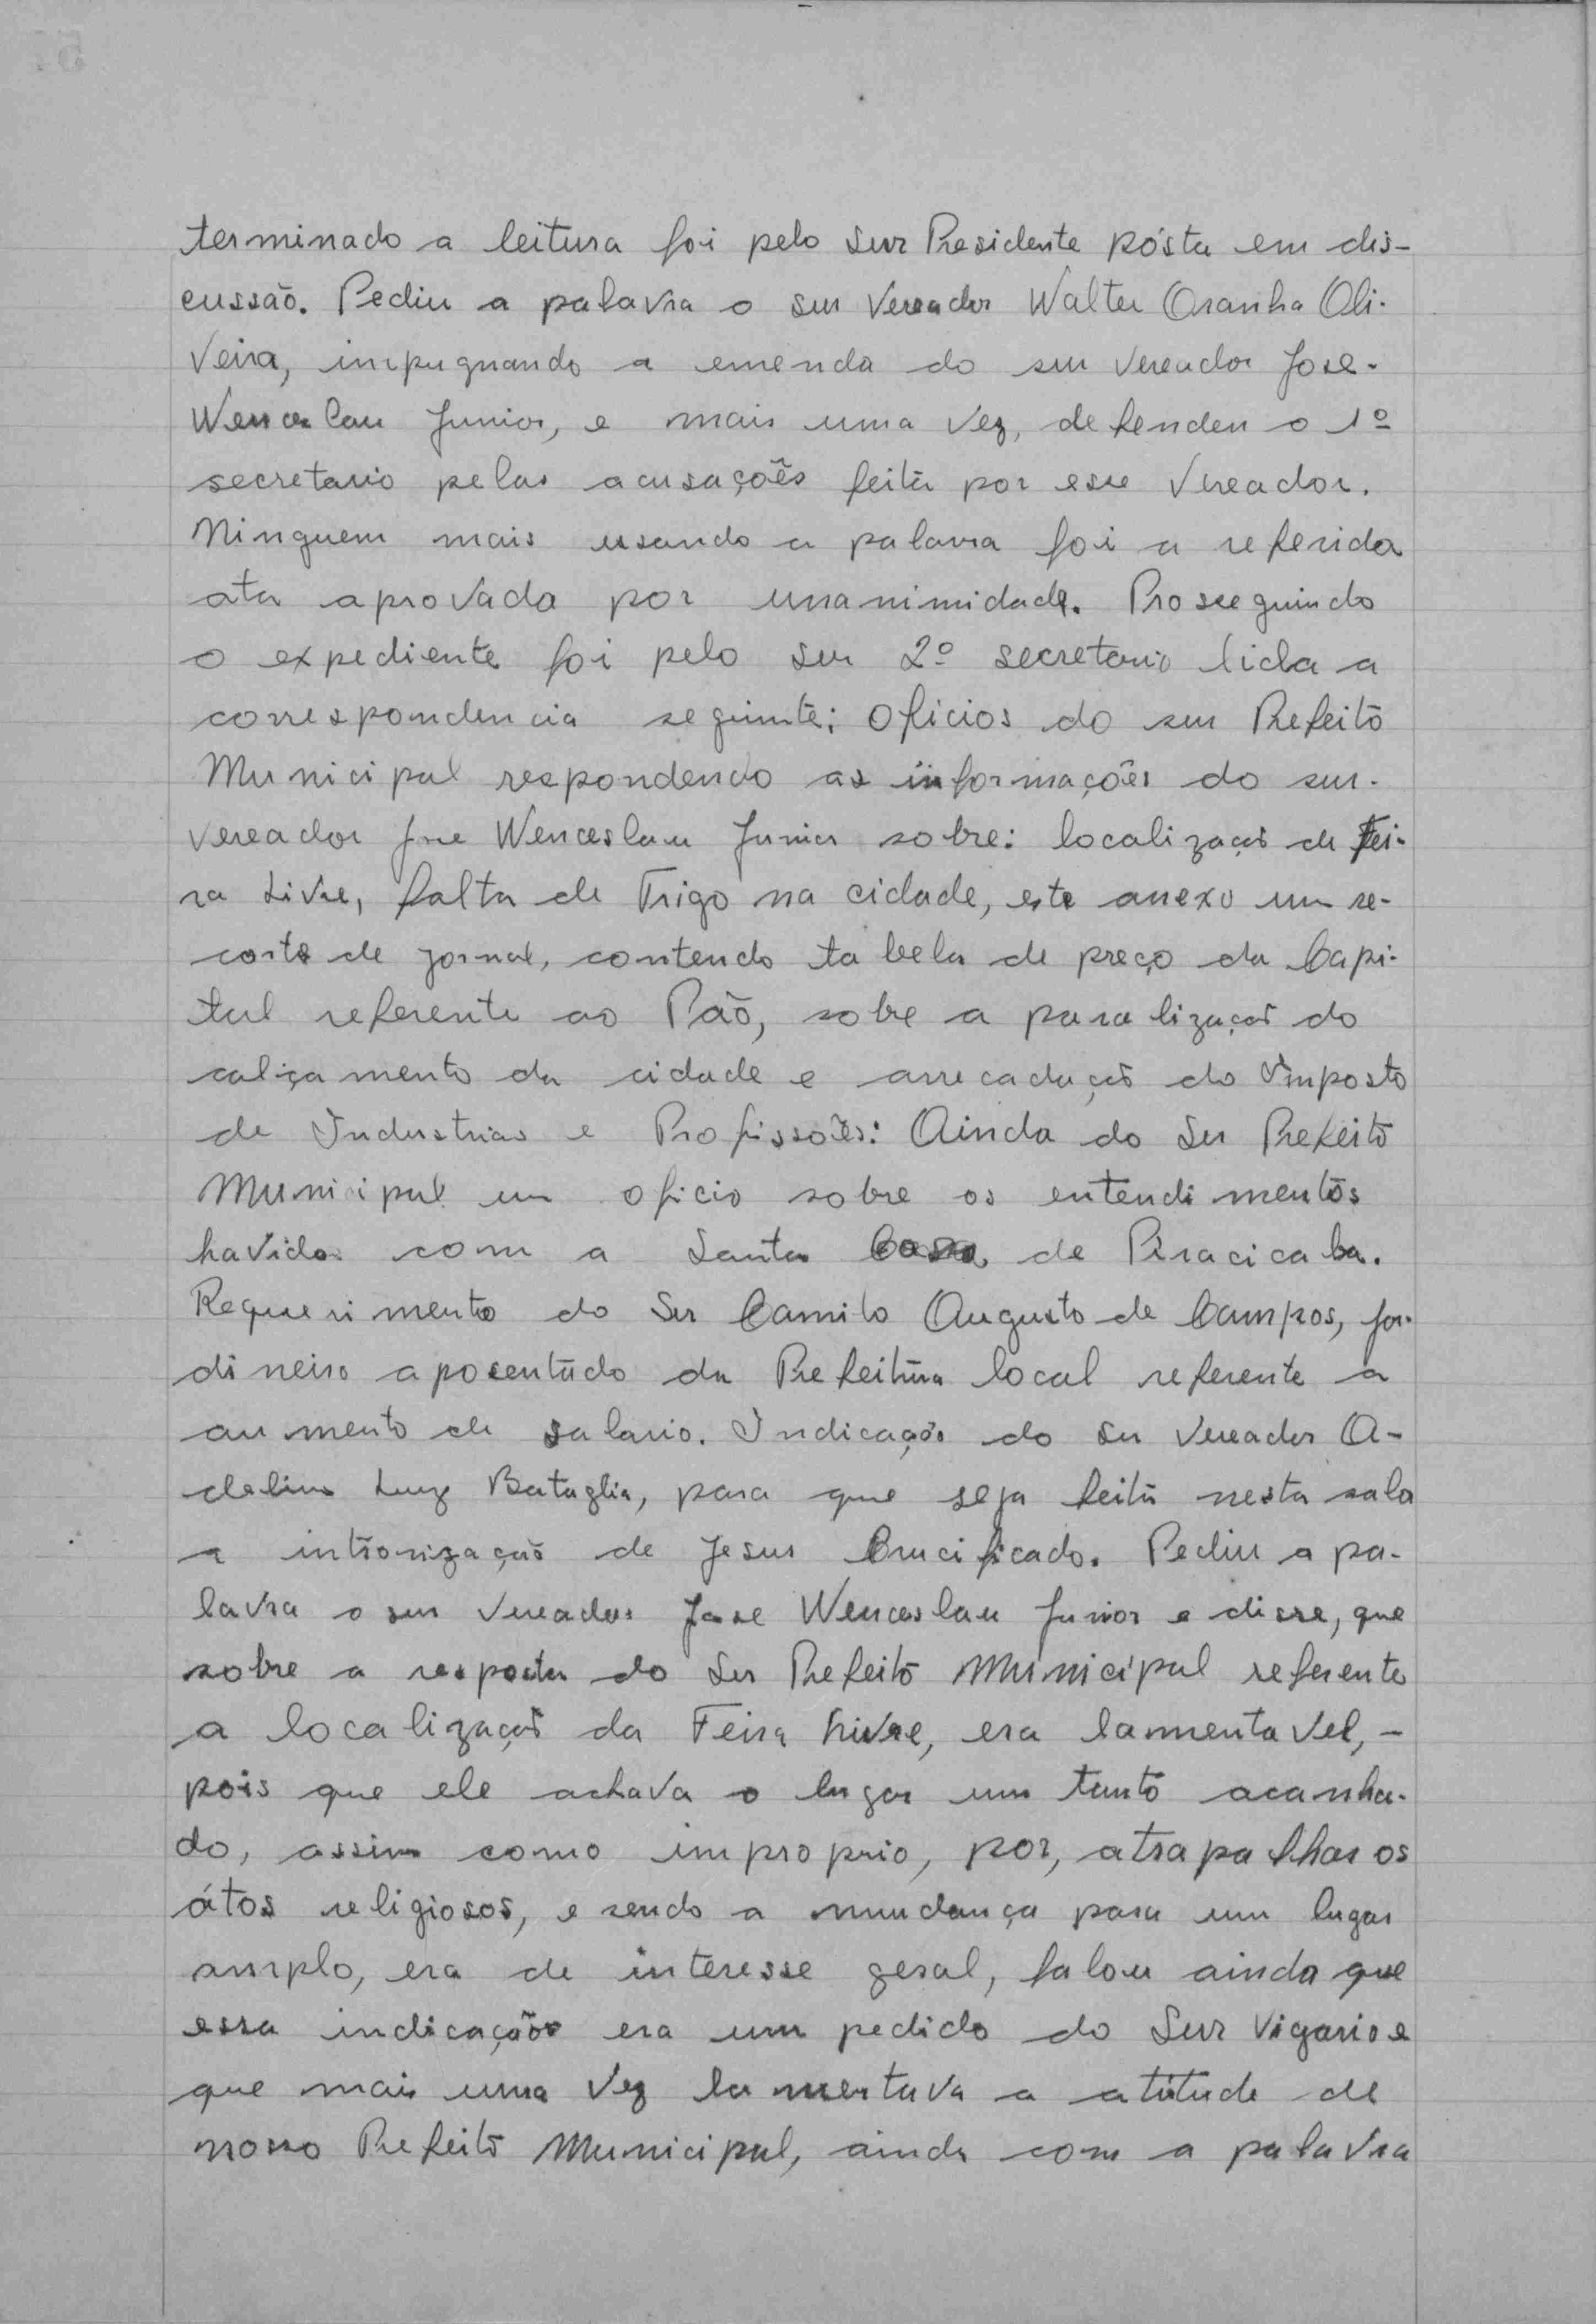 terminado a leitura foi pelo snr Presidente pósta em dis-
cussão. Pediu a palavra o snr Vereador Walter Oranha Oli-
veira, impugnando a emenda do snr vereador Jose-
Wenceslau Junior, e mais uma vez, defendeu o 1º
secretario pelas acusações feita por esse Vereador.
Ninguem mais usando a palavra foi a referida
ata aprovada por unanimidade. Proseguindo
o expediente foi pelo snr 2º secretario lida a
correspondencia seguinte: Oficios do snr Prefeito
Municipal respondendo as informações do snr.
vereador Jose Wenceslau Junior sobre: localização de Fei-
ra Livre, falta de Trigo na cidade, este anexo um re-
corte de jornal, contendo tabela de preço da Capi-
tal referente ao Pão, sobre a paralização do
calçamento da cidade e arrecadação do Imposto
de Industrias e Profissões: Ainda do Snr Prefeito
Municipal um oficio sobre os entendimentos
havidos com a Santa Casa de Piracicaba.
Requerimento do Snr Camilo Augusto de Campos, jar-
dineiro aposentado da Prefeitura local referente a
aumento de salario. Indicação do Snr Vereador A-
delino Luiz Bataglia, para que seja feita nesta sala
a intronização de Jesus Crucificado. Pediu a pa-
lavra o snr Vereador Jose Wenceslau Junior e disse, que
sobre a resposta do Snr Prefeito Municipal referente
a localização da Feira Livre, era lamentavel, -
pois que ele achava o lugar um tanto acanha-
do, assim como improprio, por, atrapalhar os
átos religiosos, e sendo a mundança para um lugar
amplo, era de interesse geral, falou ainda que
essa indicação era um pedido do Snr Vigario e
que mais uma vez lamentava a atitude de
nosso Prefeito Municipal, ainda com a palavra